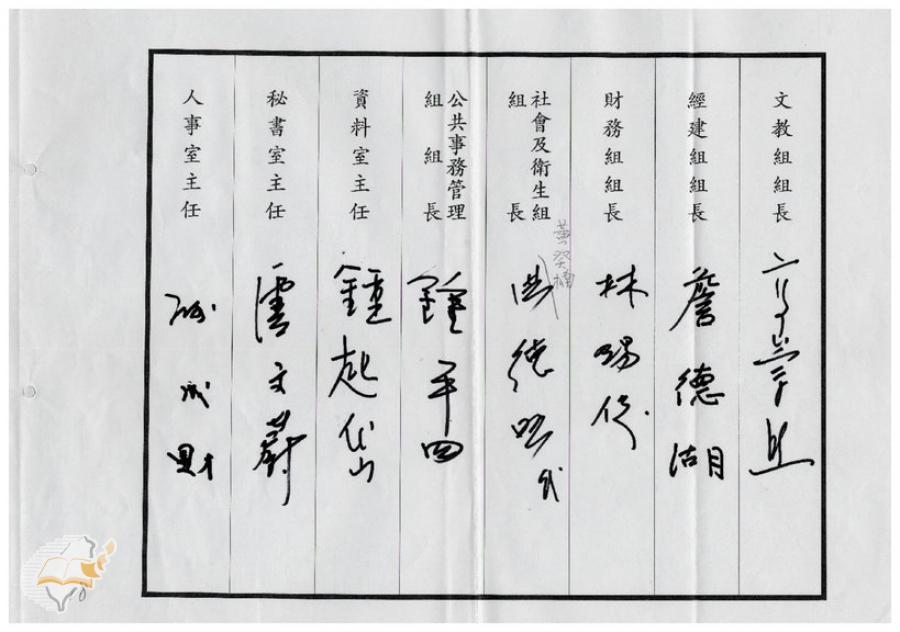 文教組組長
經建組組長
詹德湖
財務組組長
林賜俊
社會及衛生組
組長
黃癸楠
德
代
公共事務管理
組組長
鍾平四
資料室主任
鍾起岱
秘書室主任
雲文蔚
人事室主任
成財